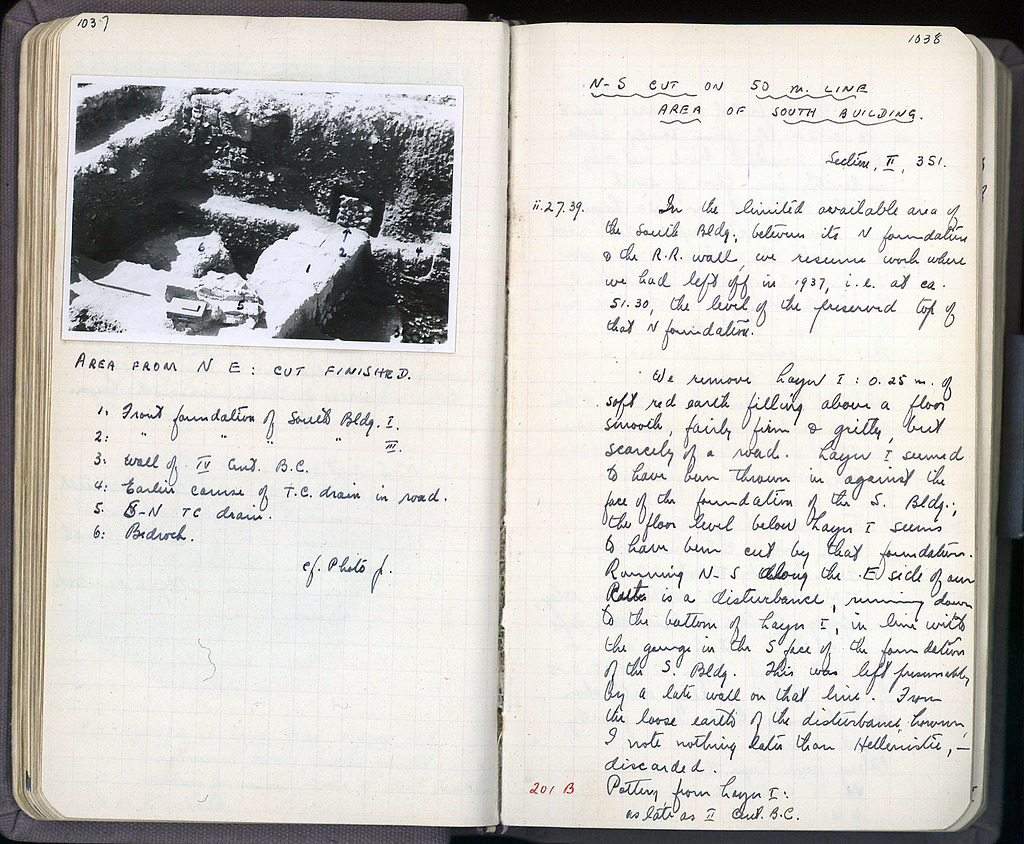 1037
6
1
2
4
5
3
AREA FROM N E: CUT FINISHED.
1. Front foundation of South Bldg. I.
2: " " " " III.
3: Wall of IV Cent. B.C.
4: Earlier course of T.C. drain in road.
5 S-N TC drain.
6: Bedrock.
cf. Photo f.
1038
N-S CUT ON 50 m. LINE
AREA OF SOUTH BUILDING.
Section, II, 351.
ii.27.39. In the limited available area of
the South Bldg., between its N foundation
& the R.R. wall, we resume work where
we had left off in 1937, i.e. at ca.
51.30, the level of the preserved top of
that N foundation.
We remove Layer I: 0.25 m. of
soft red earth filling above a floor
smooth, fairly firm & gritty, but
scarcely of a road. Layer I seemed
to have been thrown in against the
face of the foundation of the S. Bldg.;
the floor level below Layer I seems
to have been cut by that foundation.
Running N-S along the E side of our
is a disturbance, running down
to the bottom of Layer I, in line with
the gouge in the S face of the foundation
of the S. Bldg. This was left presumably
by a late wall on that line. From
the loose earth of the disturbance however
I note nothing later than Hellenistic, –
discarded.
201 B Pottery from Layer I:
as late as II Cent. B.C.